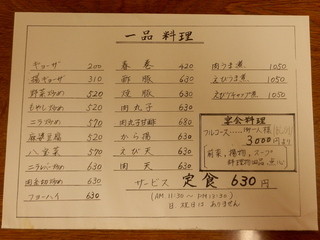 一品料理
ギョーザ 200
揚ギョーザ 310
野菜炒め 520
もやし炒め 520
ニラ炒め 570
麻婆豆腐 520
八宝菜 570
ニラレバー炒め 630
肉玉切炒め 630
フヨーハイ 630
春巻 420
酢豚 630
焼豚 630
肉丸子 630
肉丸子甘酢 680
から揚 630
えび天 630
肉天 630
肉うま煮 1050
えびうま煮 1050
えびケチャップ煮 1050
宴会料理
フルコース 一人様
3000円より
前菜、揚物、スープ
サービス 定食 630円
(AM. 11:30 ~ PM.
日、祝日は ありません